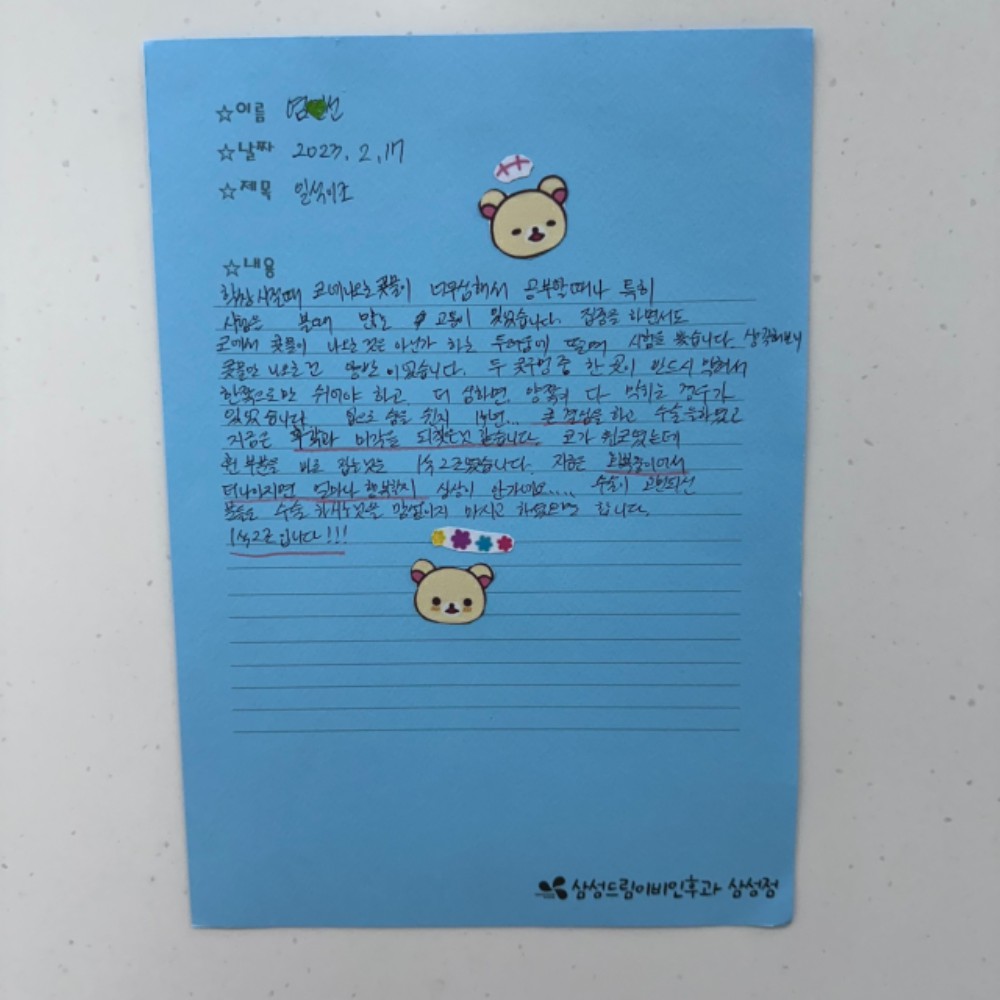 ☆이름 염 선
☆날짜 2023. 2. 17
☆제목 일석이조
☆내용
학창시절때 코에나오는 콧물이 너무심해서 공부할때나 특히
시험은 볼때 많은 고통이 있었습니다. 집중을 하면서도
코에서 콧물이 나오는 것은 아닌가 하는 두려움에 떨며 시험을 봤습니다 생각해보니
콧물만 나오는건 양반이였습니다. 두 콧구멍 중 한 곳이 반드시 막혀서
한쪽으로만 쉬어야 하고, 더 심하면 양쪽이 다 막히는 경우가
있었습니다 입으로 숨을 쉰지 14년... 큰 결심을 하고 수술을하였고
지금은 후각과 미각을 되찾은것 같습니다. 코가 휘고였는데
휜 부분을 바로 잡는것은 1석2조였습니다. 지금은 회복중이면서
더나아지면 얼마나 행복할지 상상이 안가네요..... 수술이 고민되신
분들은 수술 하시는것을 망설이지 마시고 하셨으면 합니다.
1석2조입니다!!!
삼성드림이비인후과 삼성점